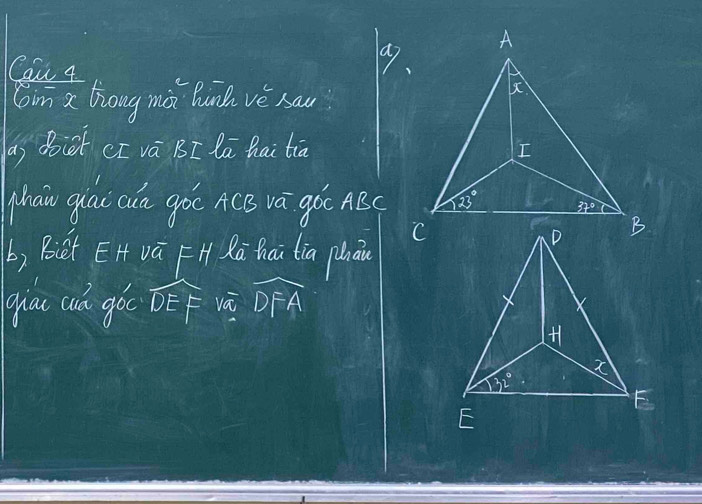 Câu 4
Tìm x trong mỗi hình vẽ sau:
a, Biết CI và BI là hai tia
phân giác của góc ACB và góc ABC
b, Biết EH và FH là hai tia phân
giác của góc DEF và DFA
a,
A
x
I
23°
37°
C
B
D
H
32°
x
E
F